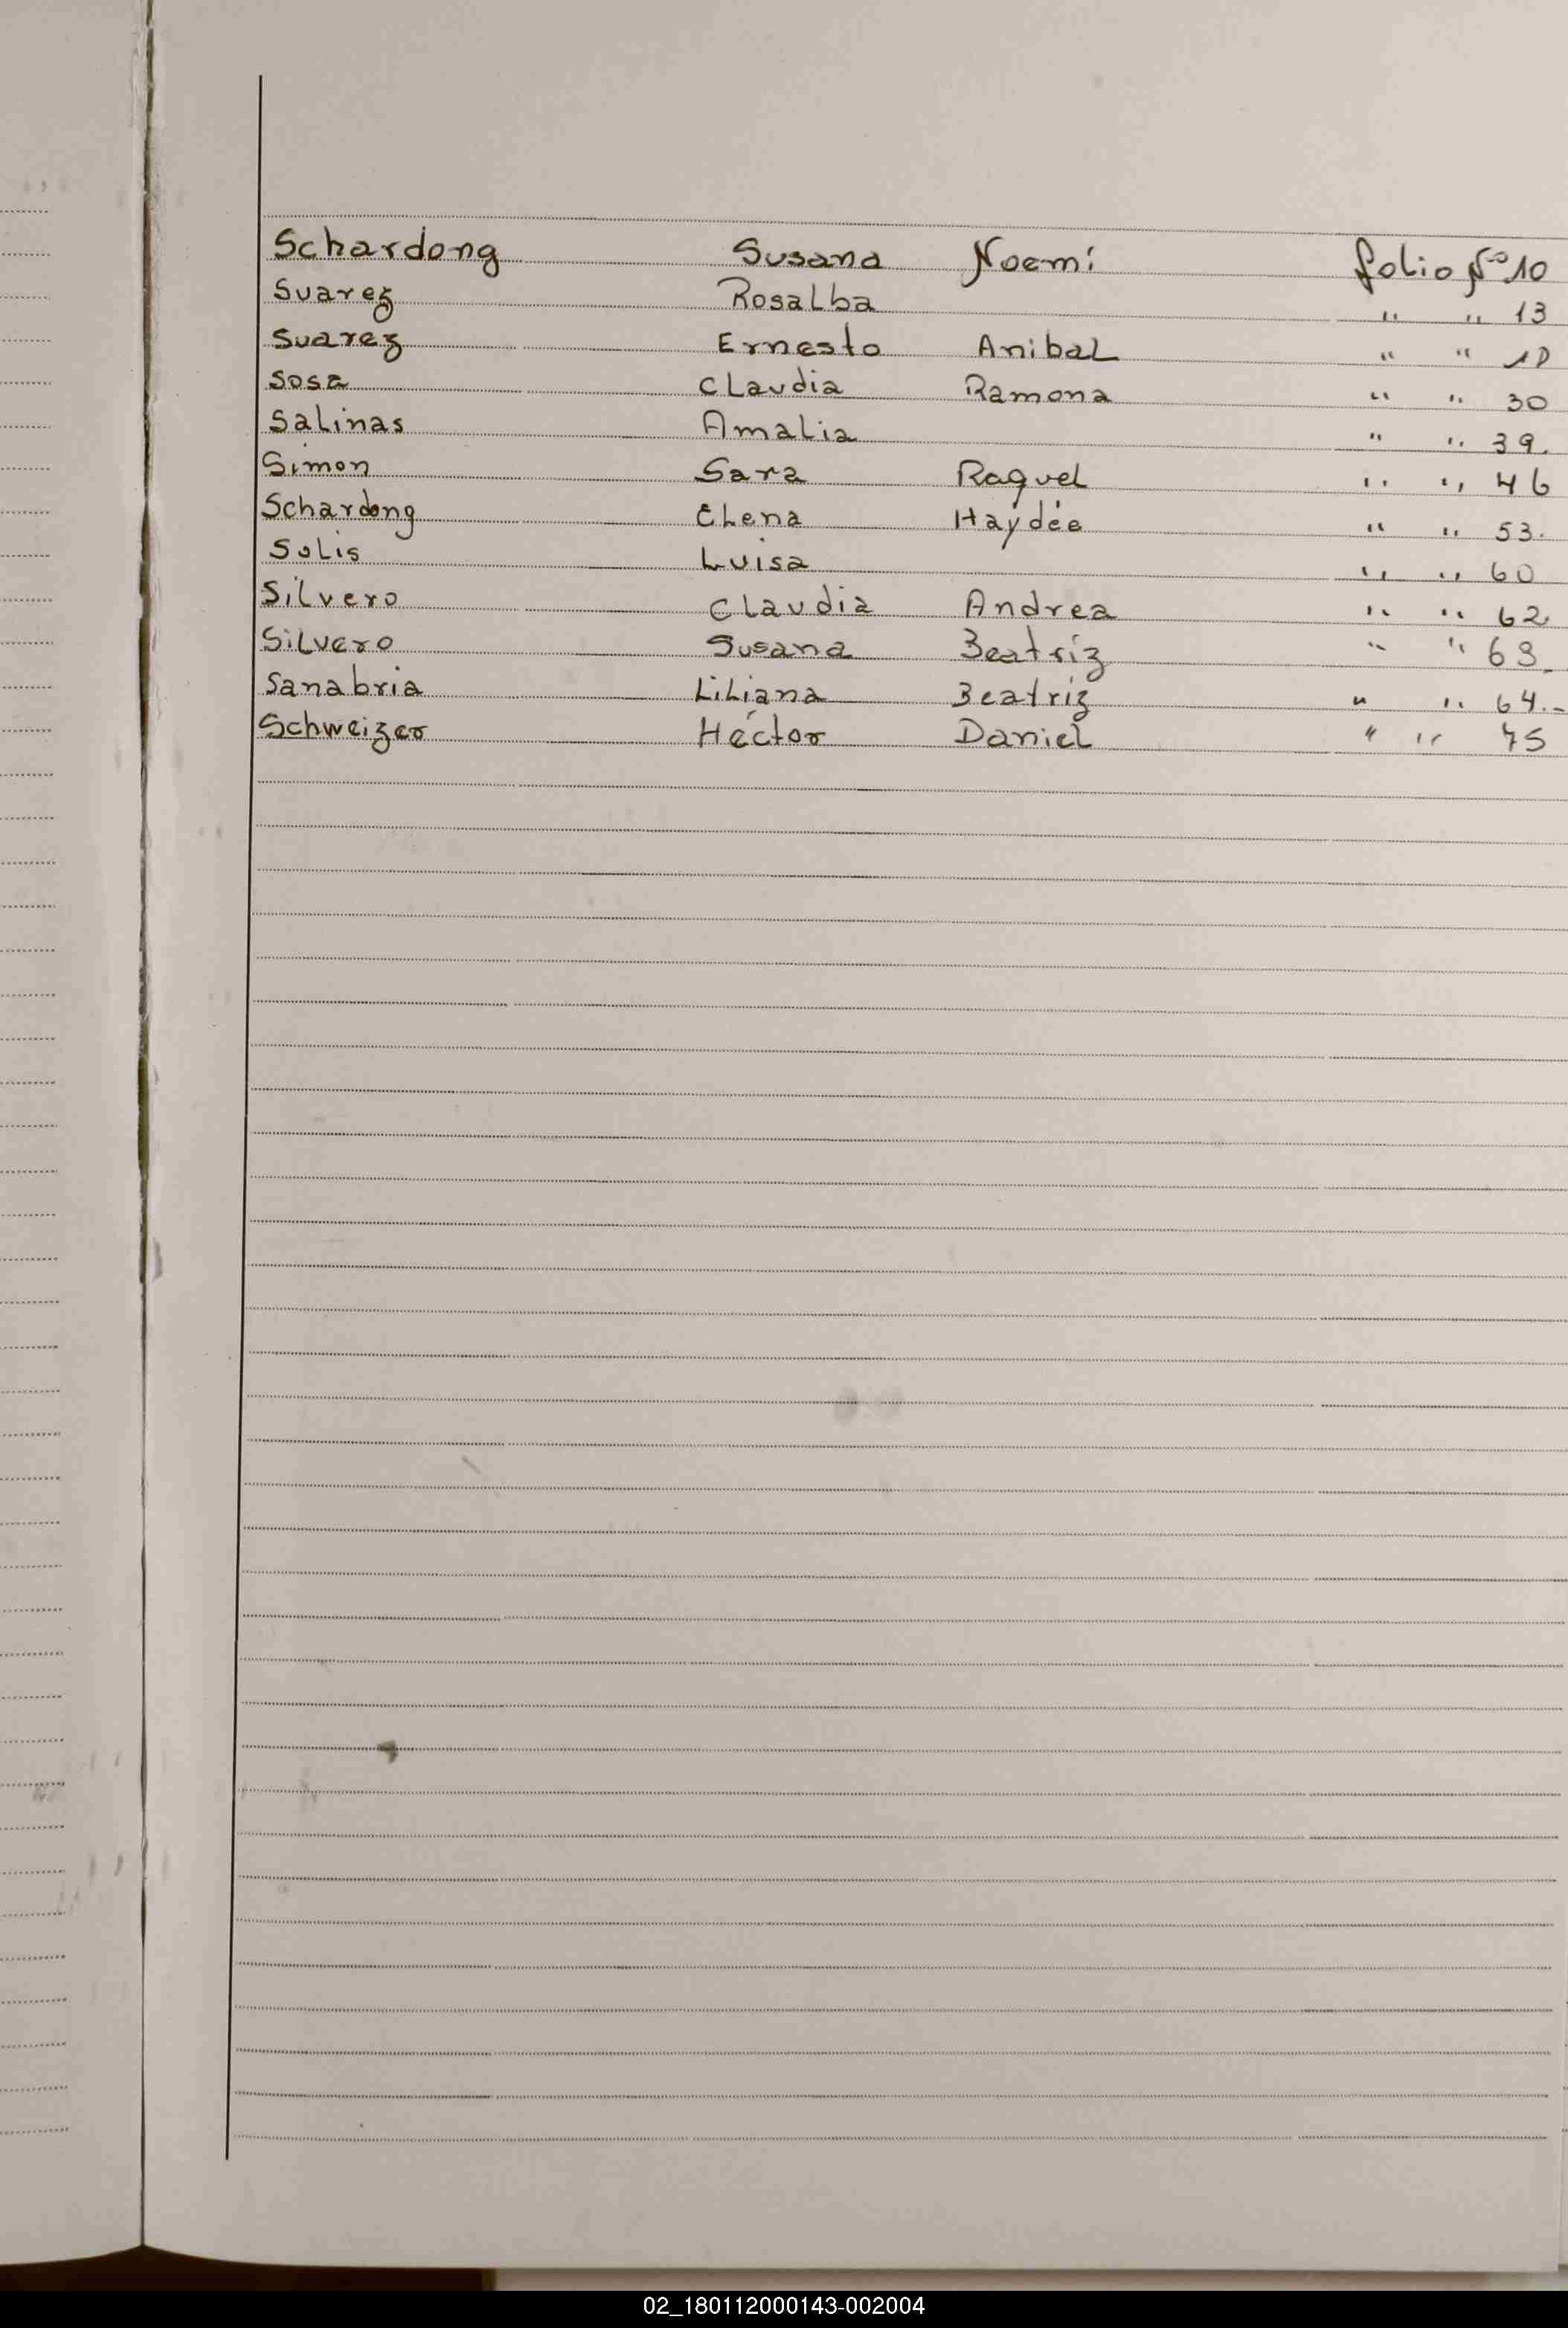 Schardong Susana Noemí folio Nº 10
Suarez Rosalba " " 13
Suarez Ernesto Anibal " " 18
Sosa Claudia Ramona " " 30
Salinas Amalia " " 39.
Simon Sara Raquel " " 46
Schardong Elena Haydée " " 53.
Solis Luisa " " 60
Silvero Claudia Andrea " " 62
Silvero Susana Beatriz " " 63
Sanabria Liliana Beatriz " " 64.-
Schweizer Héctor Daniel " " 75
02_180112000143-002004